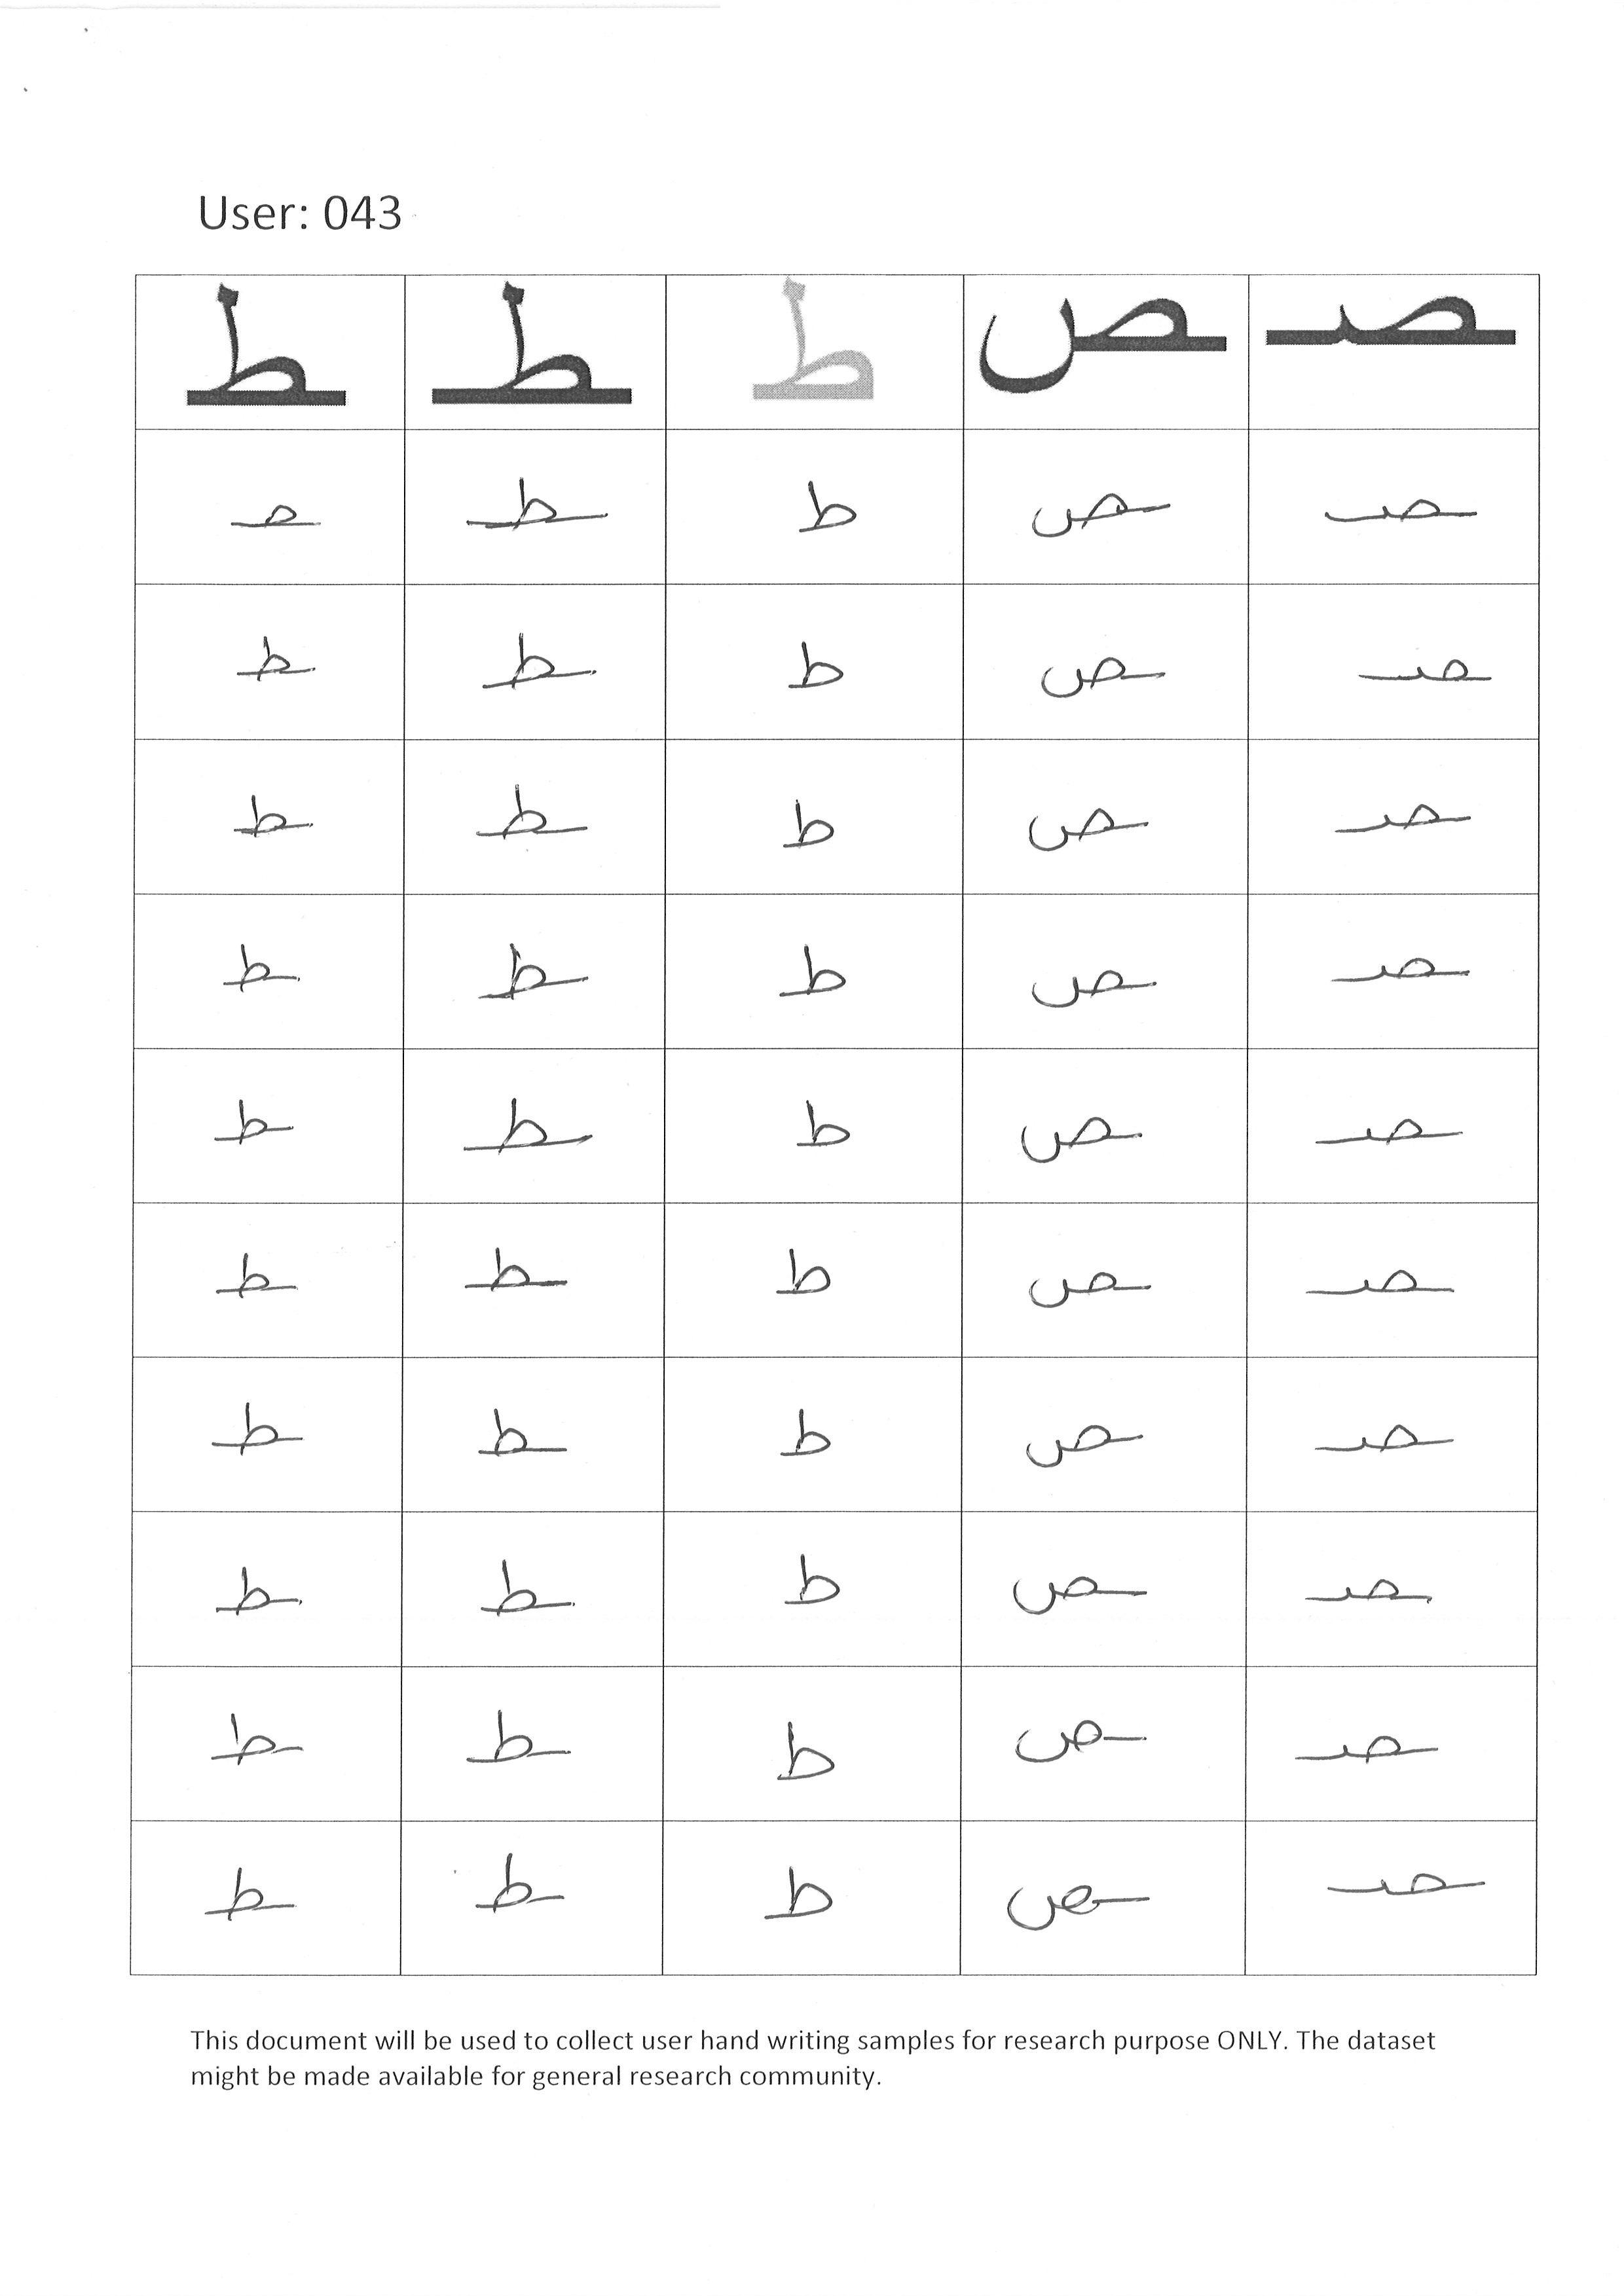 User: 043
ـصـ ـص ط ـطـ ـطـ
ـصـ ـص ط ـطـ
ـصـ ـص ط ـطـ ـطـ
ـصـ ـص ط ـطـ ـطـ
ـصـ ـص ط ـطـ ـطـ
ـصـ ـص ط ـطـ ـطـ
ـصـ ـص ط ـطـ ـطـ
ـصـ ـص ط ـطـ ـطـ
ـصـ ـص ط ـطـ ـطـ
ـصـ ـص ط ـطـ ـطـ
ـصـ ـص ط ـطـ ـطـ
This document will be used to collect user hand writing samples for research purpose ONLY. The dataset
might be made available for general research community.